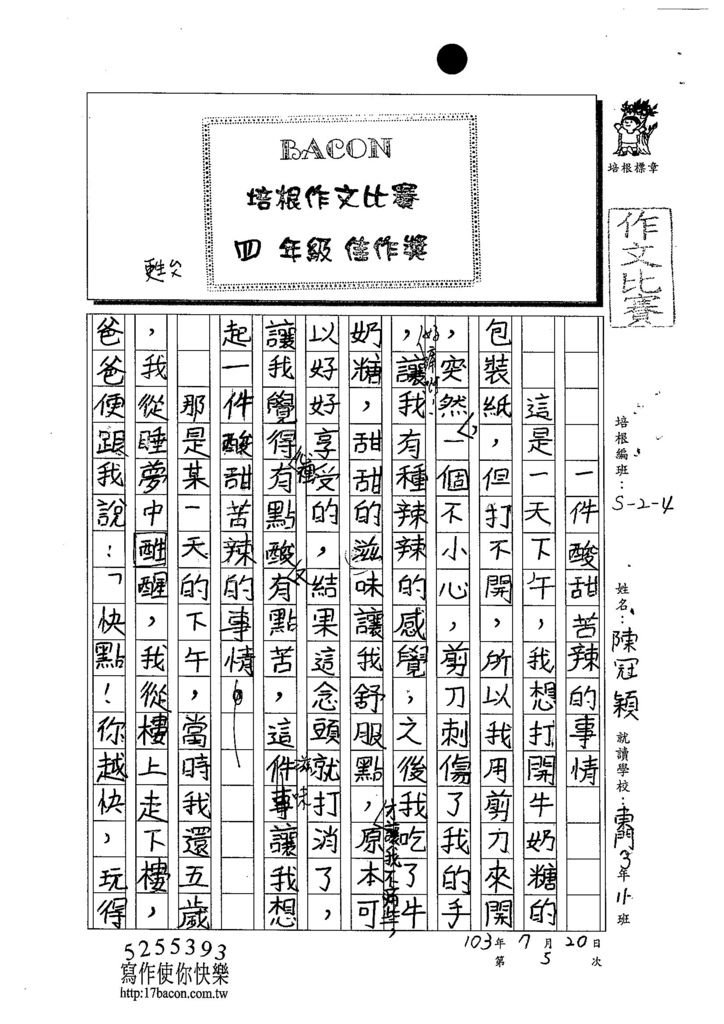 BACON
培根作文比賽
四 年級 佳作獎
甦父
培根標章
作文比賽
培根編班：S-2-4
姓名：陳冠穎 就讀學校： 3年11班
一件酸甜苦辣的事情
這是一天下午，我想打開牛奶糖的
包裝紙，但打不開，所以我用剪刀來開
，突然一個不小心，剪刀刺傷了我的手
，讓我有種辣辣的感覺，之後我吃了牛
才讓我不痛
奶糖，甜甜的滋味讓我舒服點，原本可
以好好享受的，結果這念頭就打消了，
滋味
讓我覺得有點酸有點苦，這件事讓我想
心裡
又
起一件酸甜苦辣的事情。
那是某一天的下午，當時我還五歲
，我從睡夢中甦醒，我從樓上走下樓，
爸爸便跟我說：「快點！你越快，玩得
103年7月20日
第5次
5255393
寫作使你快樂
http:17bacon.com.tw